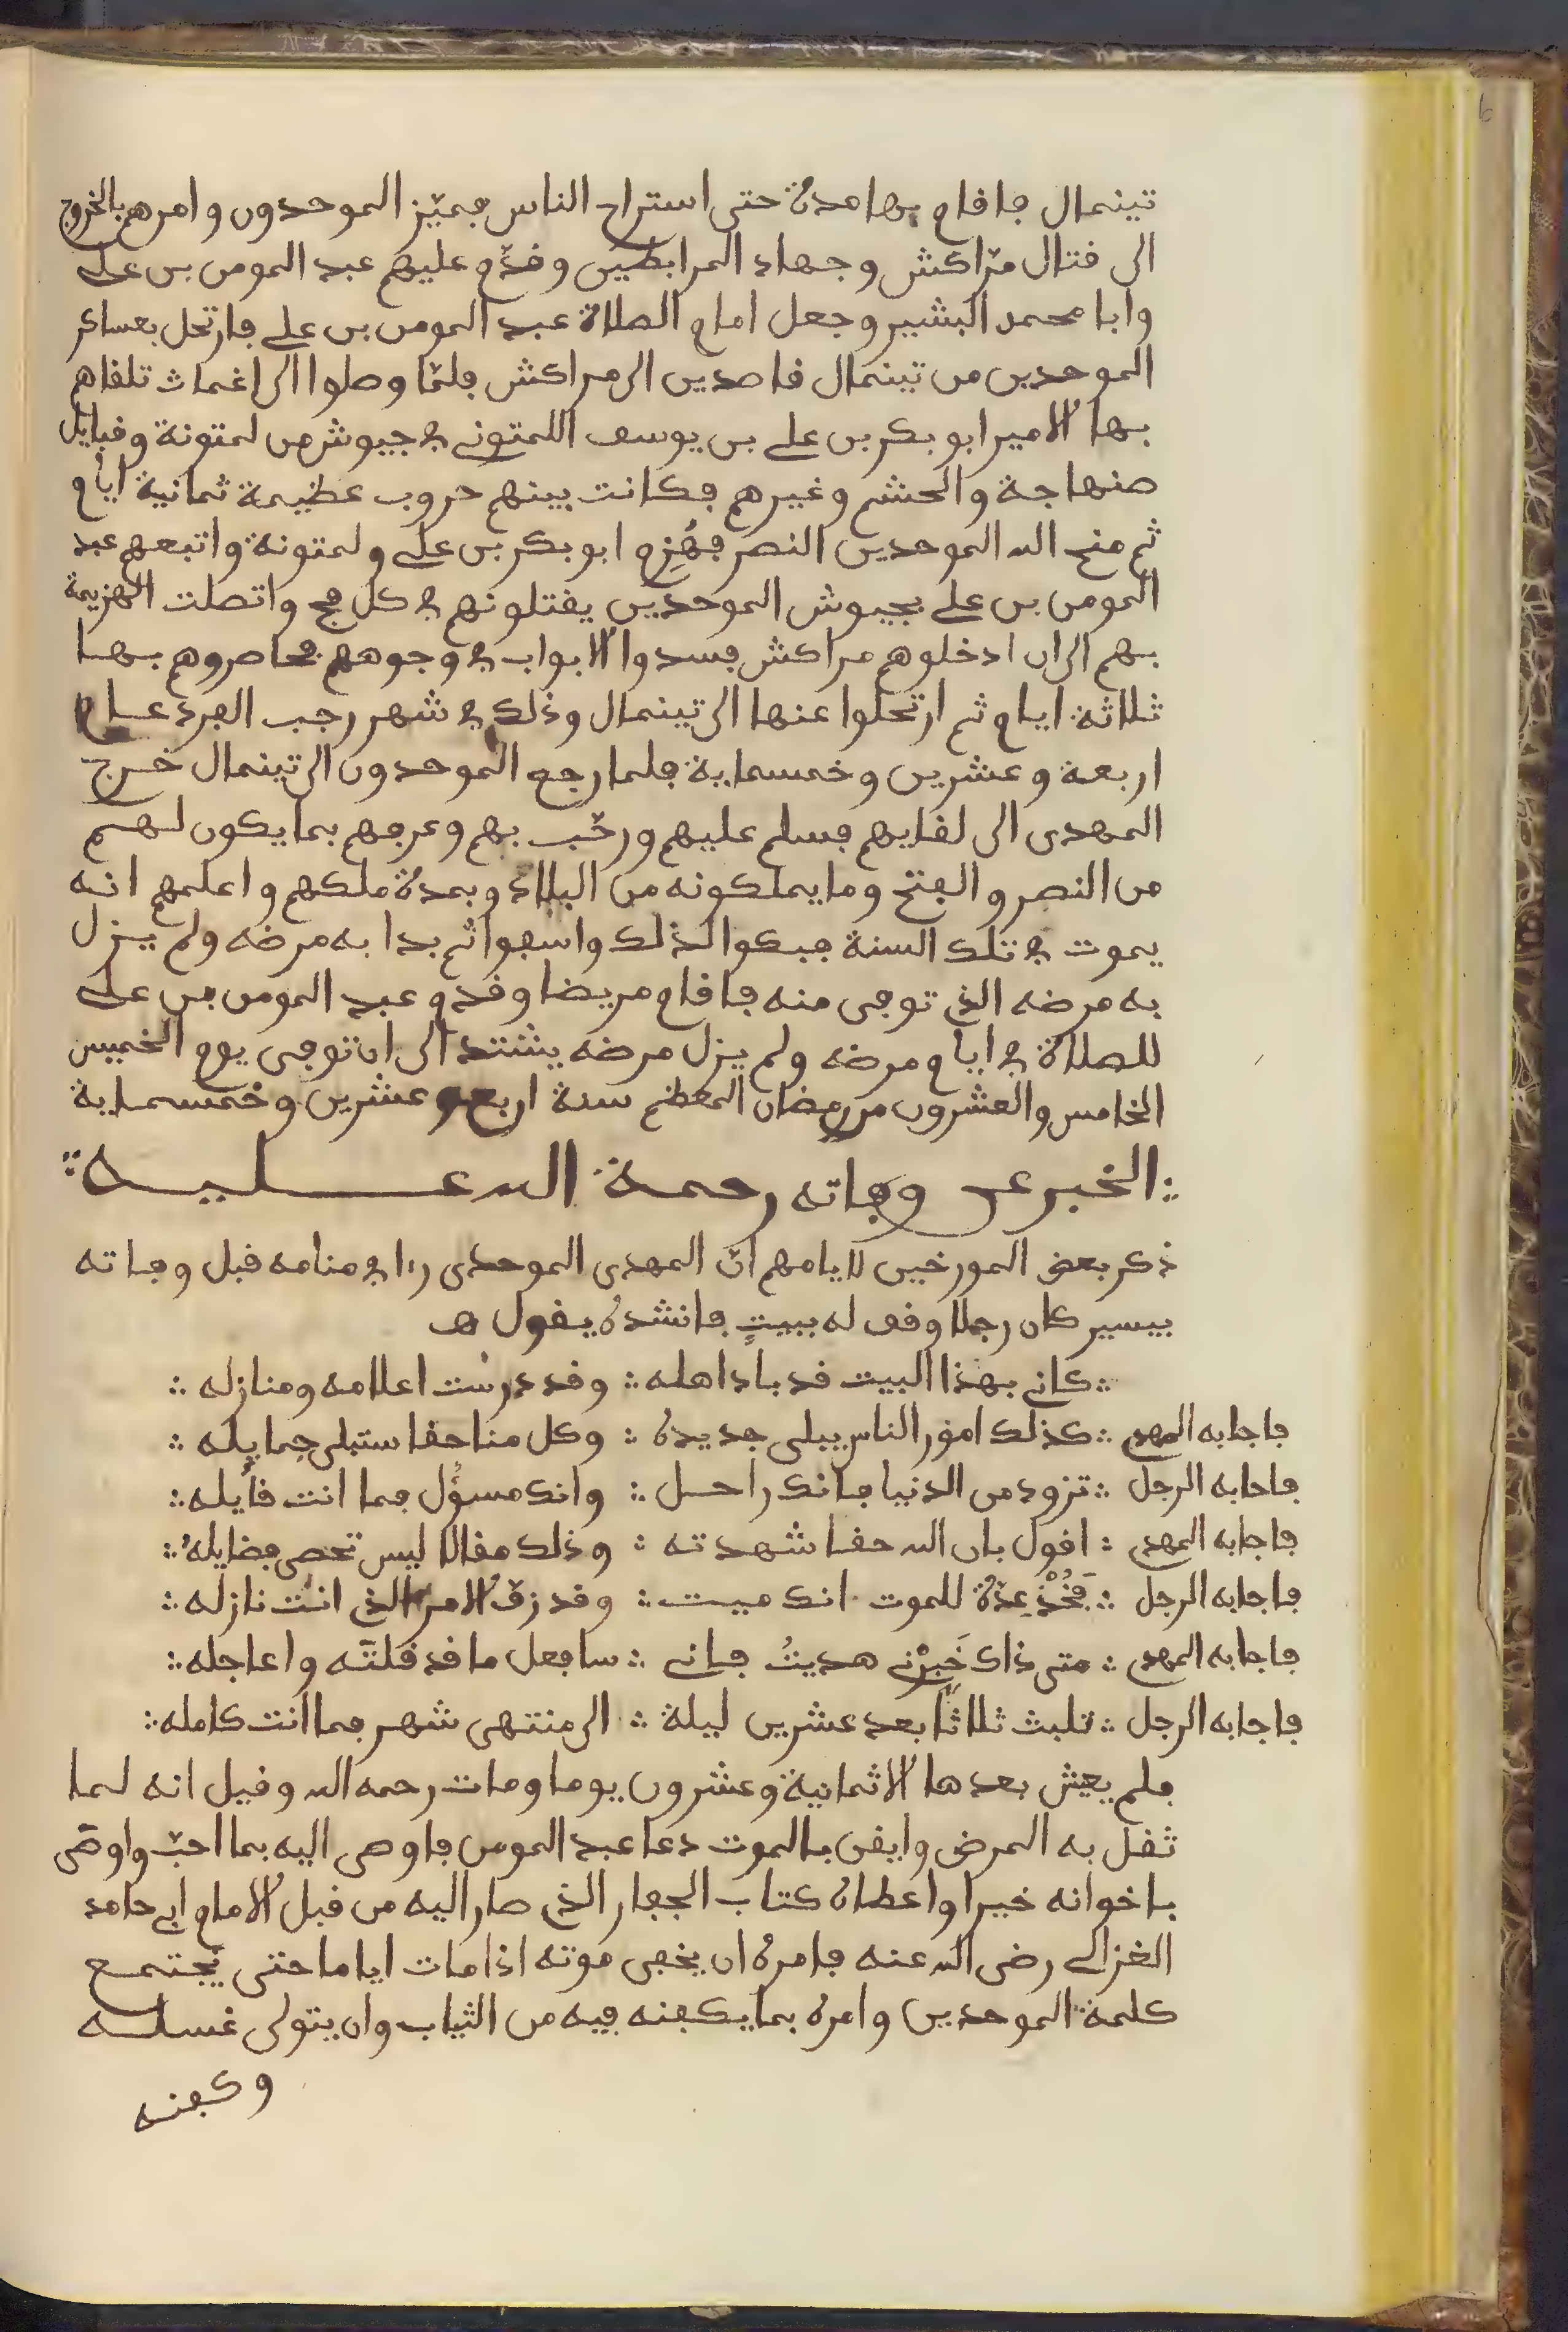 تينمال فاقام بها مدة حتى استراح الناس فميّز الموحدون وامرهم بالخروج
الى قتال مرّاكش وجهاد المرابطين وقدّم عليهم عبد المومن بن على
وابا محمد البشير وجعل امام الصلاة عبد المومن بن على فارتحل بعساكر
الموحدين من تينمال قاصدين الى مراكش فلمّا وصلوا الى اغمات تلقاهم
بها الامير ابو بكر بن على بن يوسف اللمتونى في جيوش من لمتونة وقبايل
صنهاجة والحشم وغيرهم فكانت بينهم حروب عظيمة ثمانية ايام
ثم منح الله الموحدين النصر فهُزِم ابو بكر بن على ولمتونة واتبعهم عبد
المومن بن على بجيوش الموحدين يقتلونهم في كل فج واتصلت الهزيمة
بهم الى ان ادخلوهم مراكش فسدوا الابواب في وجوههم فحاصروهم بها
ثلاثة ايام ثم ارتحلوا عنها الى تينمال وذلك في شهر رجب الفرد عام
اربعة وعشرين وخمسماية فلما رجع الموحدون الى تينمال خرج
المهدى الى لقايهم فسلم عليهم ورحّب بهم وعرفهم بما يكون لهم
من النصر والفتح وما يملكونه من البلاد وبمدة ملكهم واعلمهم انه
يموت في تلك السنة فبكوا لذلك واسفوا ثم بدا به مرضه ولم يزل
به مرضه الذى توفى منه فاقام مريضا وقدم عبد المومن بن على
للصلاة في ايام مرضه ولم يزل مرضه يشتد الى ان توفى يوم الخميس
الخامس والعشرون من رمضان المعظم سنة اربع وعشرين وخمسماية
الخبر عن وفاته رحمة الله عليه
ذكر بعض المورخين لايامهم انّ المهدى الموحدى راا في منامه قبل وفاته
بيسير كان رجلا وقف له ببيتٍ فانشده يقول
كانى بهذا البيت قد باد اهله ؞ وقد درست اعلامه ومنازله
فاجابه المهدى ؞ كذلك امور الناس يبلى جديده ؞ وكل منا حقا ستبلى جمايله
فاجابه الرجل ؞ تزود من الدنيا فانك راحل ؞ وانك مسؤل فما انت قايله
فاجابه المهدى ؞ اقول بان الله حقا شهدته ؞ وذلك مقالا ليس تحصى فضايله
فاجابه الرجل ؞ فَخُذْ عِدّة للموت انك ميت ؞ وقد زف الامر الذى انت نازله
فاجابه المهدى ؞ متى ذاك خَبِرْنى هديتُ فانى ؞ سافعل ما قد قلتَه واعاجله
فاجابه الرجل ؞ تلبث ثلاثاً بعد عشرين ليلة ؞ الى منتهى شهر فما انت كامله
فلم يعش بعدها الا ثمانية وعشرون يوما ومات رحمه الله وقيل انه لما
ثقل به المرض وايقن بالموت دعا عبد المومن فاوصى اليه بما احبّ واوصّى
باخوانه خيرا واعطاه كتاب الجفار الذى صار اليه من قبل الامام ابى حامد
الغزالى رضى الله عنه فامره ان يخفى موته اذا مات اياما حتى يجتمع
كلمة الموحدين وامره بما يكفنه فيه من الثياب وان يتولى غسله
وكفنه